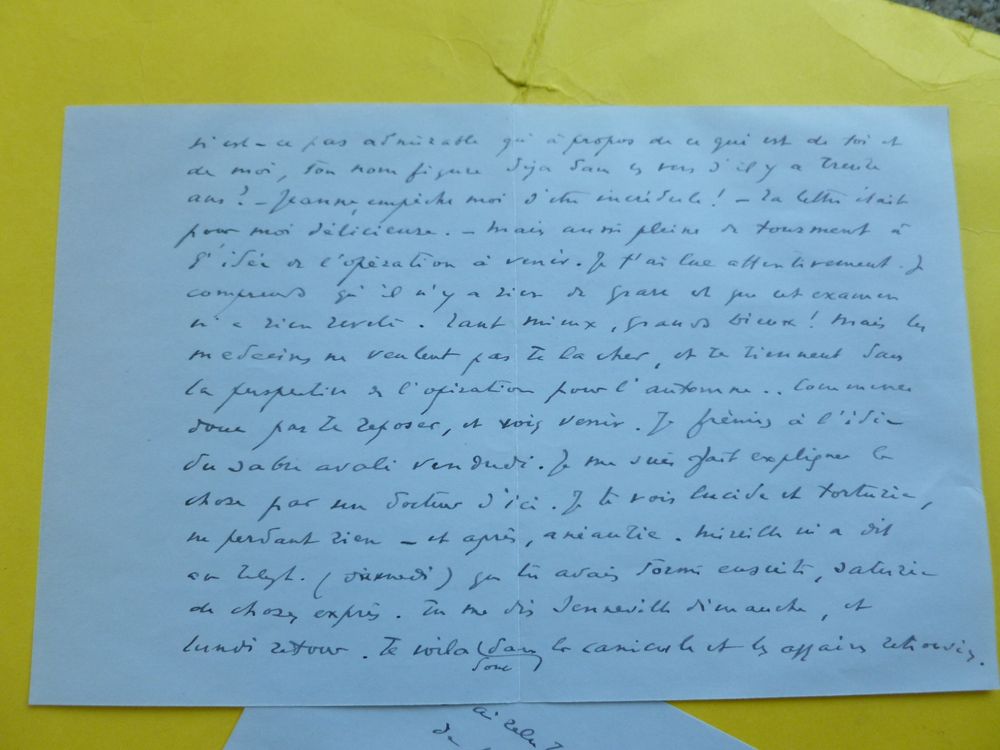 n'est-ce pas admirable qu'à propos de ce qui est de toi et
de moi, ton nom figure déjà dans ces vers d'il y a trente
ans? - Jeanne, empêche moi d'être incrédule! - Ta lettre était
pour moi délicieuse. - Mais aussi pleine de tourment à
l'idée de l'opération à venir. Je t'ai lue attentivement. Je
comprends qu'il n'y a rien de grave et que cet examen
n'a rien révélé. Tant mieux, grands Dieux! Mais les
médecins ne veulent pas te lacher, et te tiennent dans
la perspective de l'opération pour l'automne.. Commence
donc par te reposer, et vois venir. Je frémis à l'idée
du sabre avalé vendredi. Je me suis fait expliquer la
chose par un docteur d'ici. Je te vois lucide et torturée,
ne perdant rien - et après, anéantie. Mireille m'a dit
au téléph. (samedi) que tu avais dormi ensuite, saturée
de choses exprès. Tu me dis Senneville dimanche, et
lundi retour. Te voilà (dans la canicule et les affaires
donc)
ai relu
de